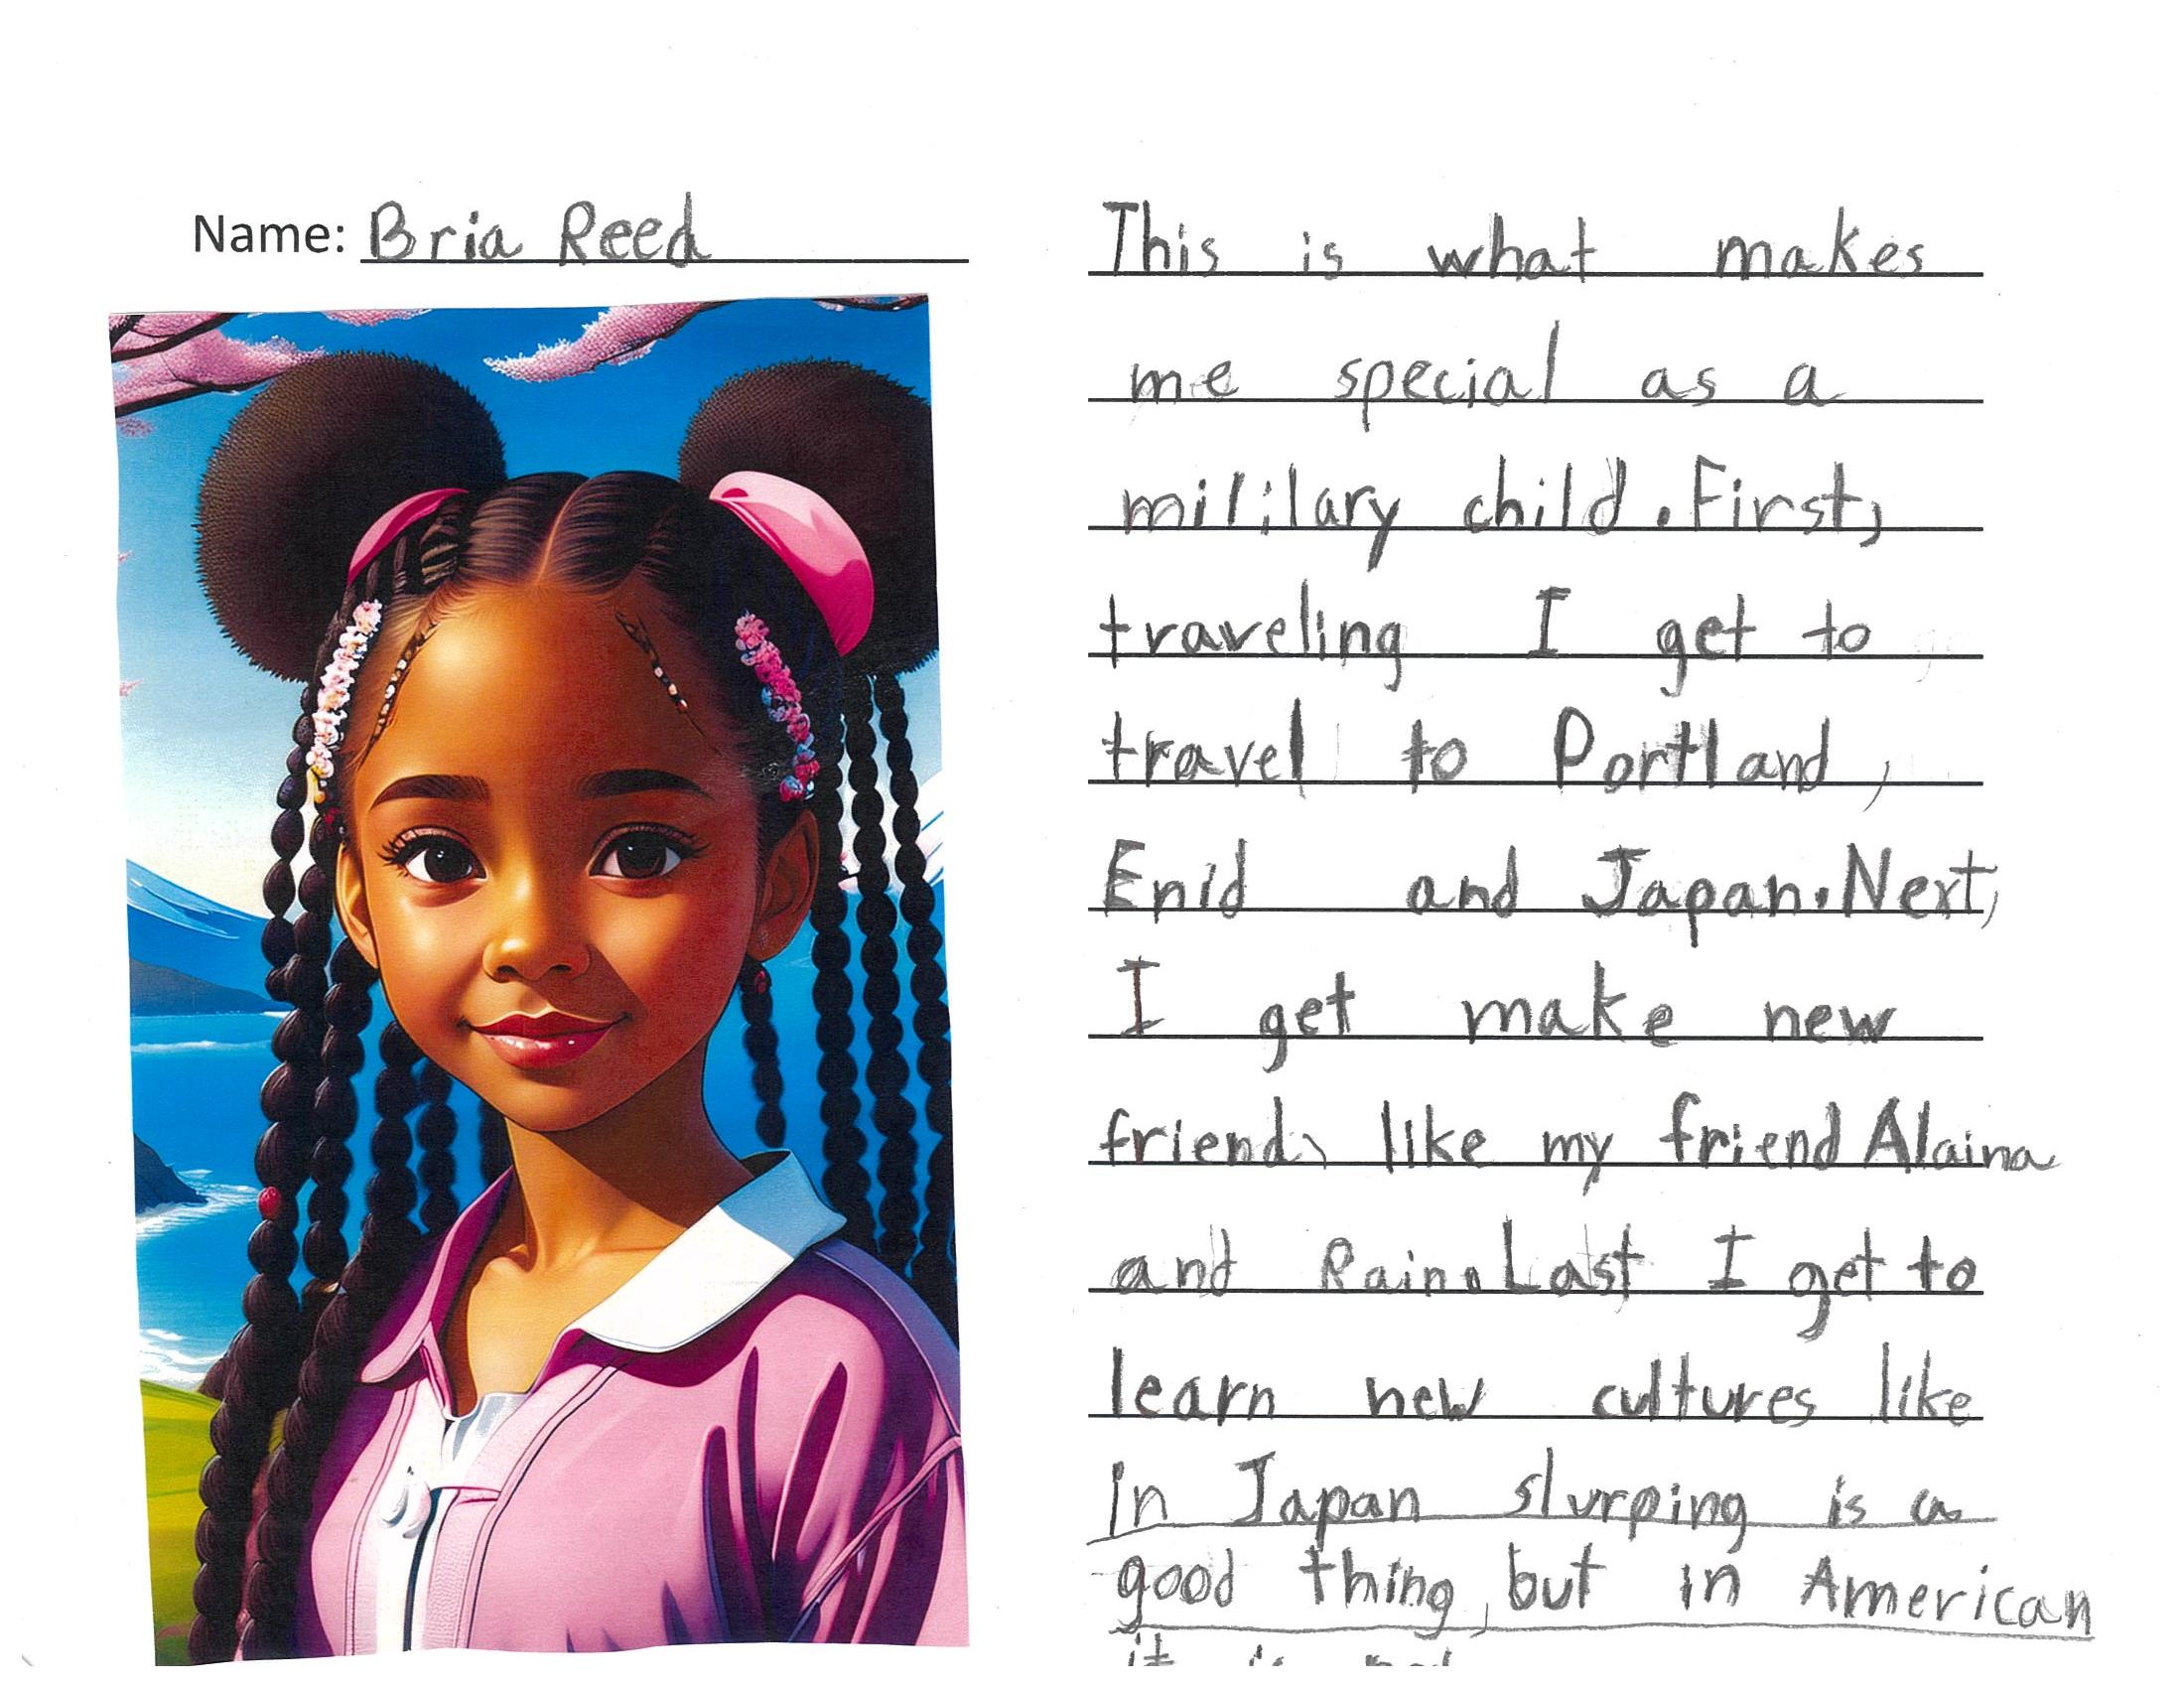 Name: Bria Reed
This is what makes
me special as a
mililary child. First,
traveling I get to
travel to Portland,
Enid and Japan. Next,
I get make new
friends like my friend Alaina
and Rain. Last I get to
learn new cultures like
in Japan slurping is a
good thing, but in American
it is